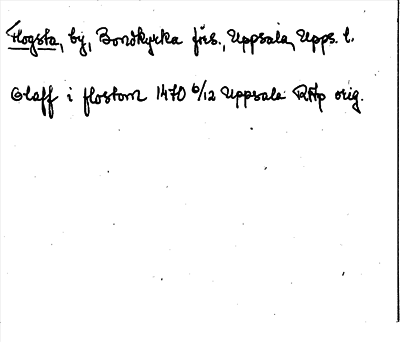 Flogsta, by, Bondkyrkaförs., Uppsala, Upps. l.
Olaff i flostom 1470 6/12 Uppsala RAp orig.